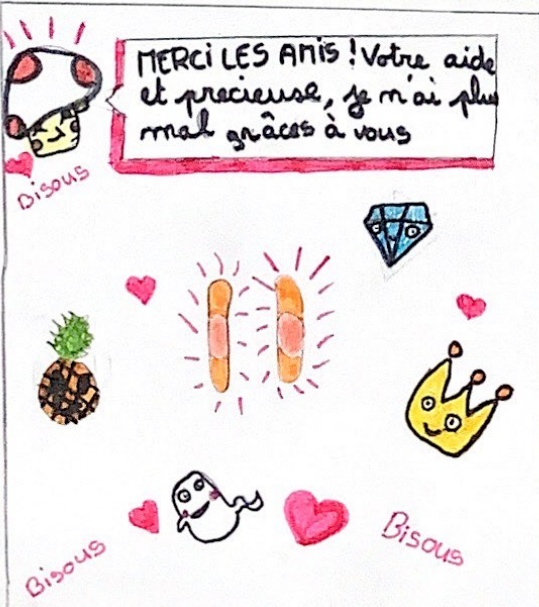 MERCI LES AMIS ! Votre aide
et precieuse, je n'ai plus
mal grâces à vous
Bisous
Bisous
Bisous